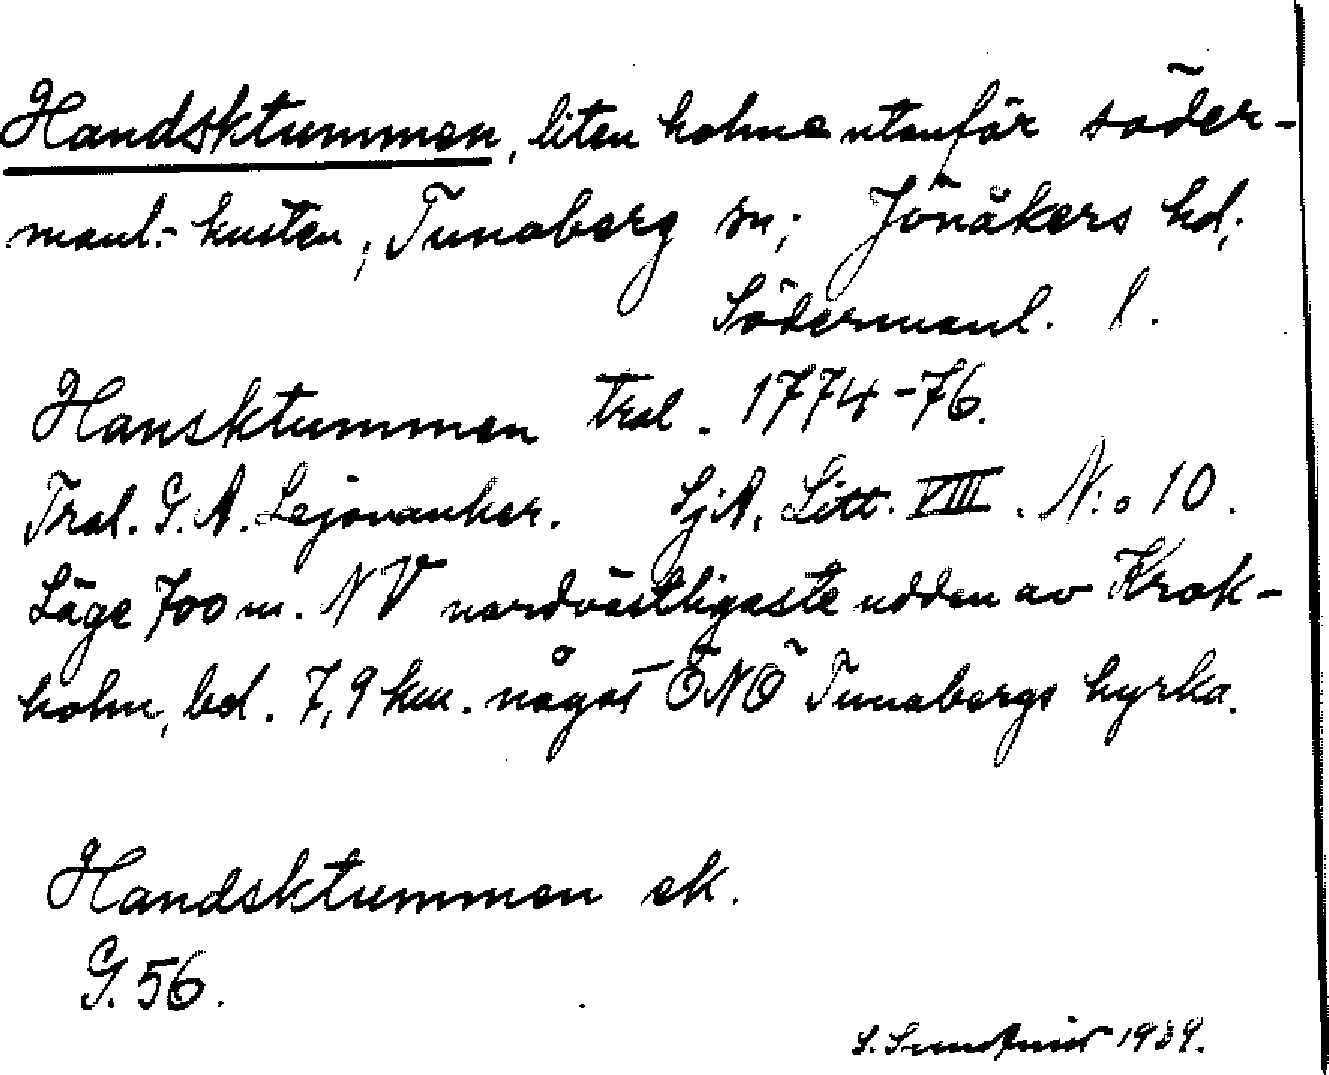 Handsktummen, liten holme utanför söder-
manl.- kusten, Tunaberg sn; Jönåkers hd;
Södermanl. l.
Hansktummen Tral. 1774-76.
Tral. G. A. Lejonanker. SjA. Litt. VIII. N:o 10.
Läge 700 m. NV nordvästligaste udden av Krok-
holm, bel. 7,9 km. något ÖNÖ Tunabergs kyrka.
Handsktummen ek.
G. 56.
S. 1939.